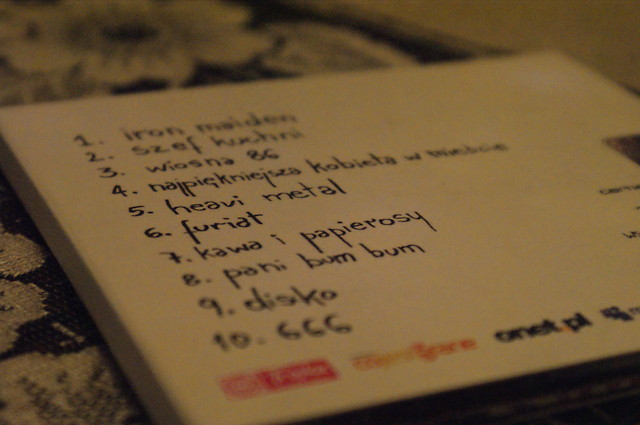 1. iron maiden
2. szef kuchni
3. wiosna 86
4. najpiękniejsza kobieta w mieście
5. heavi metal
6. furiat
7. kawa i papierosy
8. pani bum bum
9. disko
10. 666
onet.pl